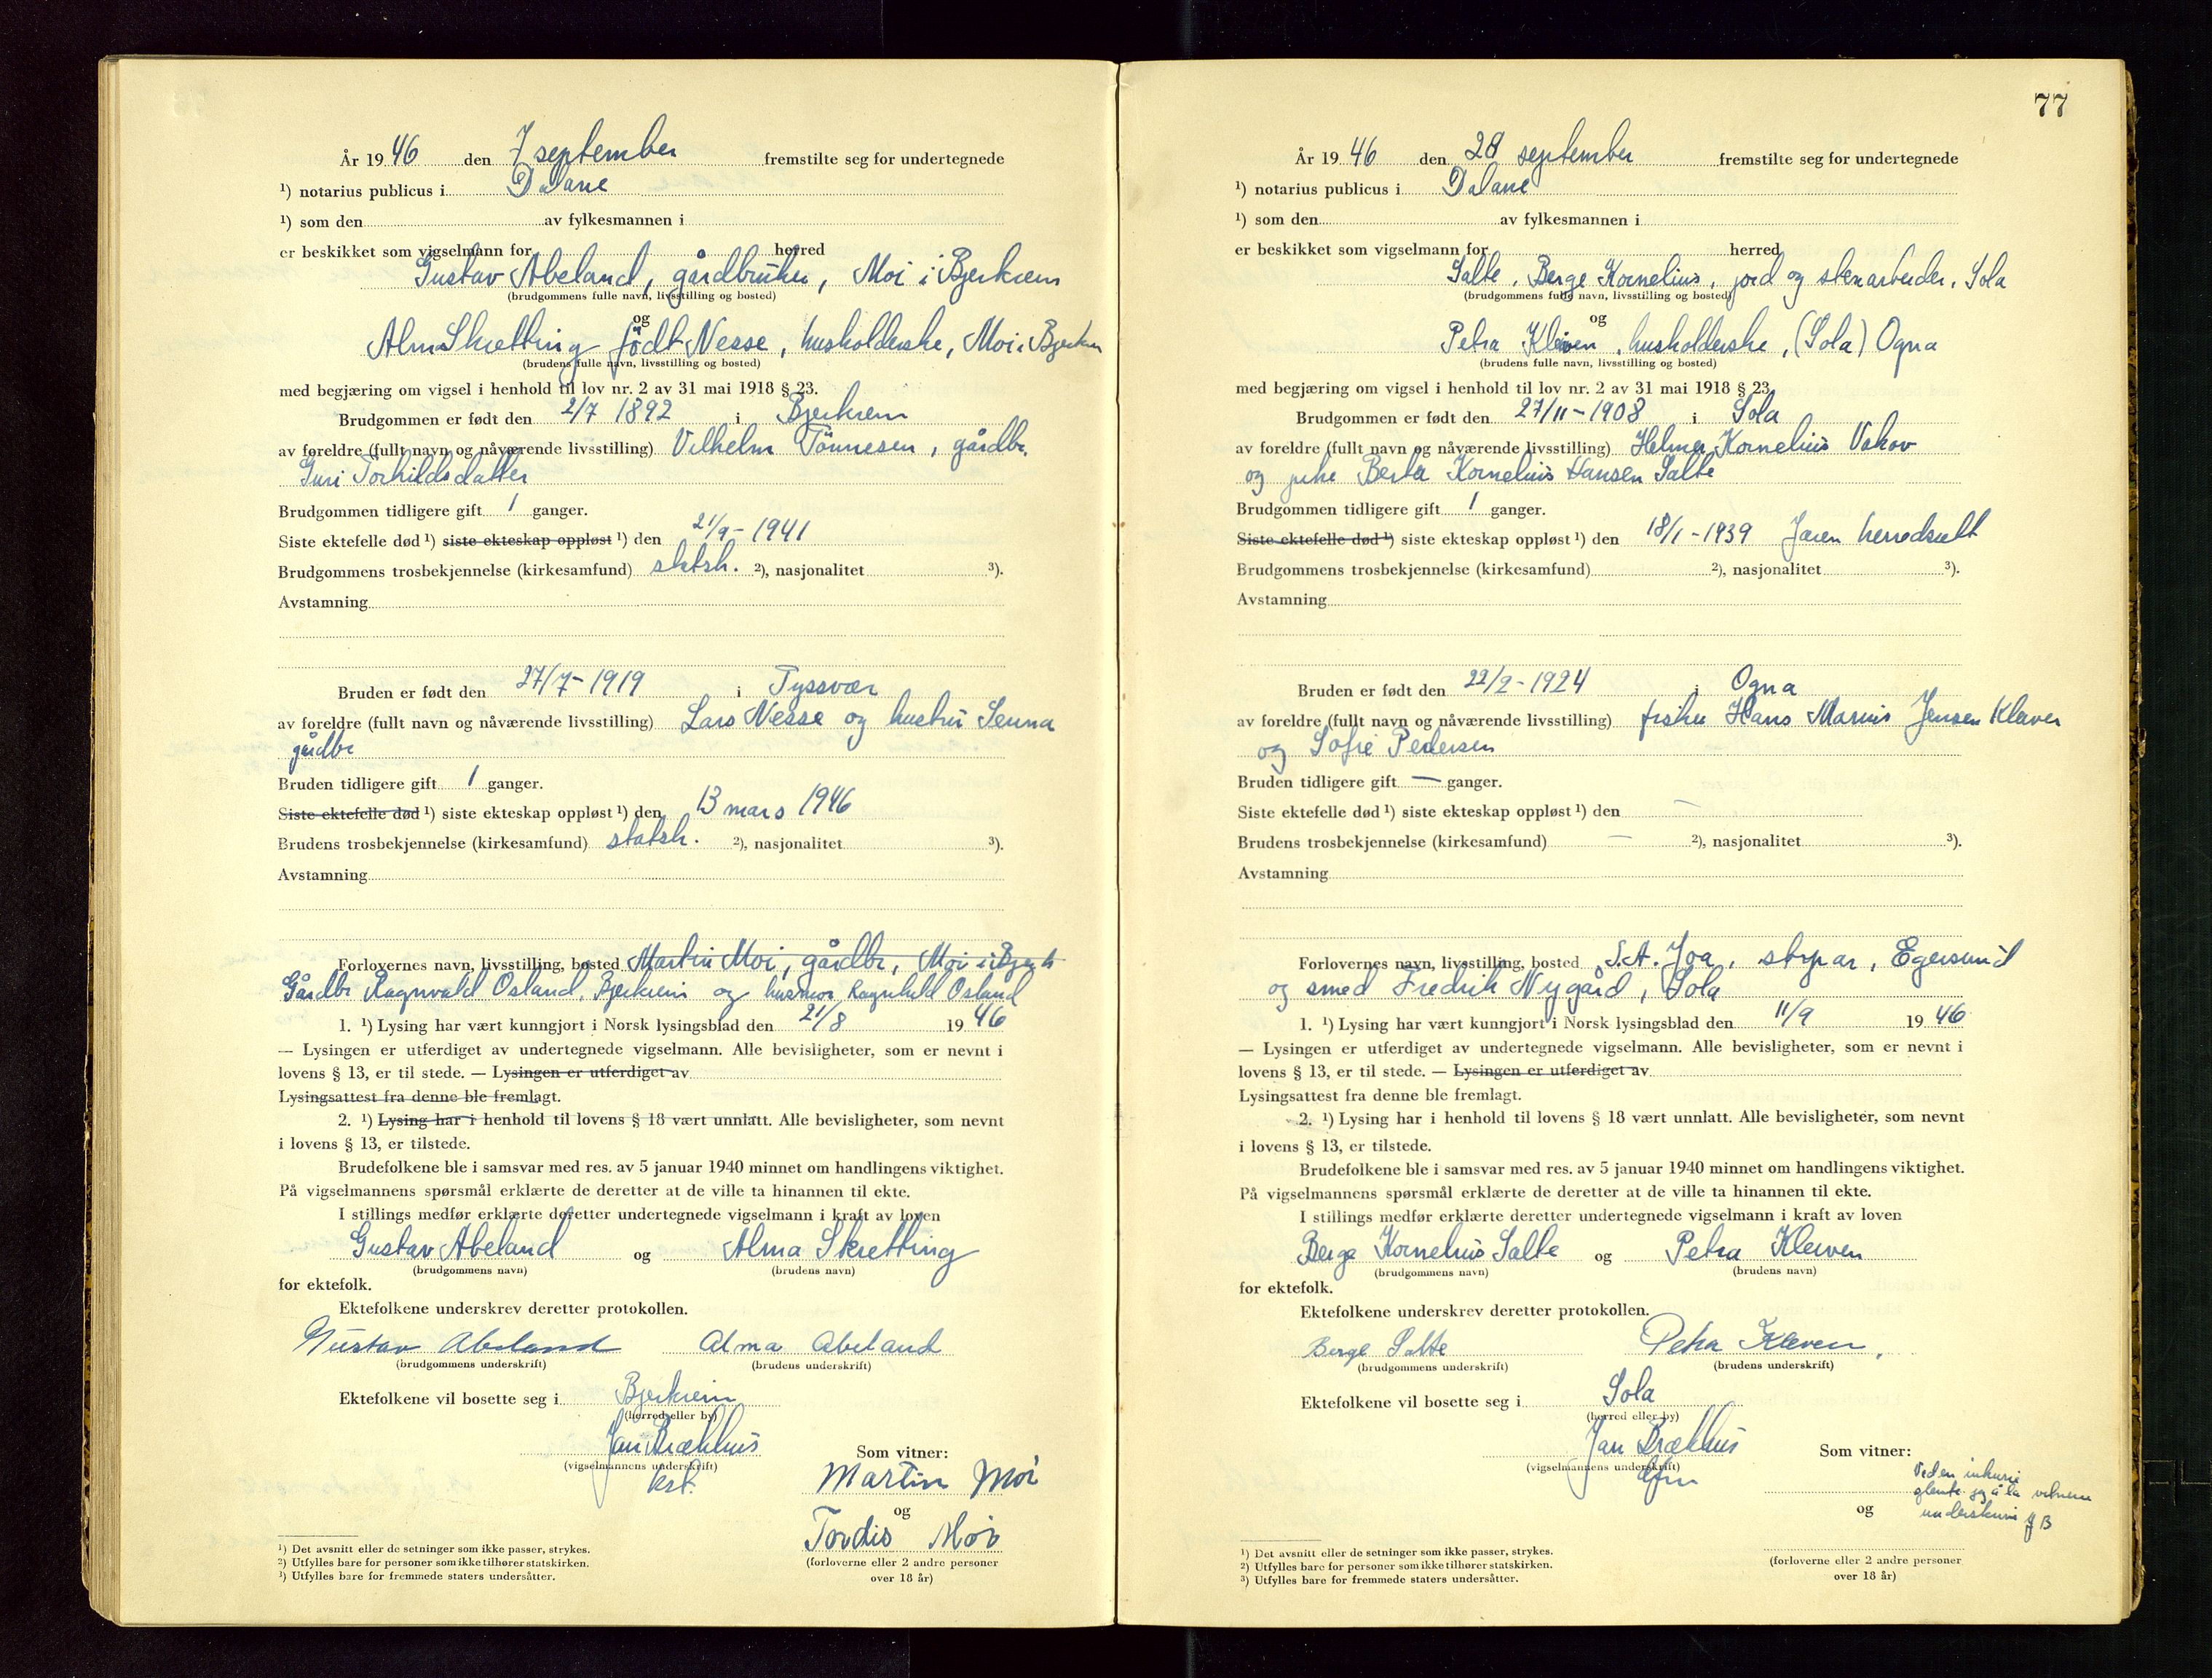 År 19 46 den 7 september fremstilte seg for undertegnede
¹) notarius publicus i Dalane
¹) som den av fylkesmannen i
er beskikket som vigselmann for herred
Gustav Abeland, gårdbruker, Moi i Bjerkrem
(brudgommens fulle navn, livsstilling og bosted)
og
Alma Skretting født Nesse, husholderske, Moi i Bjerkrem
(brudens fulle navn, livsstilling og bosted)
med begjæring om vigsel i henhold til lov nr. 2 av 31 mai 1918 § 23.
Brudgommen er født den 2/7 1892 i Bjerkrem
av foreldre (fullt navn og nåværende livsstilling) Vilhelm Tönnesen, gårdbr.
Guri Torkildsdatter
Brudgommen tidligere gift 1 ganger.
Siste ektefelle død ¹) siste ekteskap oppløst ¹) den 21/9-1941
Brudgommens trosbekjennelse (kirkesamfund) statsk. ²), nasjonalitet ³).
Avstamning
Bruden er født den 27/7-1919 i Tyssvær
av foreldre (fullt navn og nåværende livsstilling) Lars Nesse og hustru Senna
gårdbr
Bruden tidligere gift 1 ganger.
Siste ektefelle død ¹) siste ekteskap oppløst ¹) den 13 mars 1946
Brudens trosbekjennelse (kirkesamfund) statsk. ²), nasjonalitet ³).
Avstamning
Forlovernes navn, livsstilling, bosted Martin Moi, gårdbr, Moi i Bjerkr
Gårdbr Ragnvald Osland, Bjerkreim og husmor Ragnhild Osland
1. ¹) Lysing har vært kunngjort i Norsk lysingsblad den 21/8 19 46
— Lysingen er utferdiget av undertegnede vigselmann. Alle bevisligheter, som er nevnt i
lovens § 13, er til stede. — Lysingen er utferdiget av
Lysingsattest fra denne ble fremlagt.
2. ¹) Lysing har i henhold til lovens § 18 vært unnlatt. Alle bevisligheter, som nevnt
i lovens § 13, er tilstede.
Brudefolkene ble i samsvar med res. av 5 januar 1940 minnet om handlingens viktighet.
På vigselmannens spørsmål erklærte de deretter at de ville ta hinannen til ekte.
I stillings medfør erklærte deretter undertegnede vigselmann i kraft av loven
Gustav Abeland og Alma Skretting
(brudgommens navn) (brudens navn)
for ektefolk.
Ektefolkene underskrev deretter protokollen.
Gustav Abeland Alma Abeland
(brudgommens underskrift) (brudens underskrift)
Ektefolkene vil bosette seg i Bjerkreim
(herred eller by)
Jan Brækhus
(vigselmannens underskrift)
kst.
Som vitner:
Martin Moi
og
Tordis Moi
(forloverne eller 2 andre personer
over 18 år)
¹) Det avsnitt eller de setninger som ikke passer, strykes.
²) Utfylles bare for personer som ikke tilhører statskirken.
³) Utfylles bare for fremmede staters undersåtter.
77
År 19 46 den 28 september fremstilte seg for undertegnede
¹) notarius publicus i Dalane
¹) som den av fylkesmannen i
er beskikket som vigselmann for herred
Salte, Berge Kornelius, jord og stenarbeider, Sola
(brudgommens fulle navn, livsstilling og bosted)
og
Petra Kleiven, husholderske, (Sola) Ogna
(brudens fulle navn, livsstilling og bosted)
med begjæring om vigsel i henhold til lov nr. 2 av 31 mai 1918 § 23.
Brudgommen er født den 27/11-1908 i Sola
av foreldre (fullt navn og nåværende livsstilling) Helmer Kornelius
og Berta Kornelius Hansen Salte
Brudgommen tidligere gift 1 ganger.
Siste ektefelle død ¹) siste ekteskap oppløst ¹) den 18/1-1939 Jæren herredsrett
Brudgommens trosbekjennelse (kirkesamfund) ²), nasjonalitet ³).
Avstamning
Bruden er født den 22/2-1924 i Ogna
av foreldre (fullt navn og nåværende livsstilling) fisker Hans Marius Jensen Kleven
og Sofie Pedersen
Bruden tidligere gift — ganger.
Siste ektefelle død ¹) siste ekteskap oppløst ¹) den —
Brudens trosbekjennelse (kirkesamfund) — ²), nasjonalitet ³).
Avstamning
Forlovernes navn, livsstilling, bosted S.A. Joa, Egersund
og smed Fredrik Nygård, Sola
1. ¹) Lysing har vært kunngjort i Norsk lysingsblad den 11/9 19 46
— Lysingen er utferdiget av undertegnede vigselmann. Alle bevisligheter, som er nevnt i
lovens § 13, er til stede. — Lysingen er utferdiget av
Lysingsattest fra denne ble fremlagt.
2. ¹) Lysing har i henhold til lovens § 18 vært unnlatt. Alle bevisligheter, som nevnt
i lovens § 13, er tilstede.
Brudefolkene ble i samsvar med res. av 5 januar 1940 minnet om handlingens viktighet.
På vigselmannens spørsmål erklærte de deretter at de ville ta hinannen til ekte.
I stillings medfør erklærte deretter undertegnede vigselmann i kraft av loven
Berge Kornelius Salte og Petra Kleiven
(brudgommens navn) (brudens navn)
for ektefolk.
Ektefolkene underskrev deretter protokollen.
Berge Salte Petra Kleven.
(brudgommens underskrift) (brudens underskrift)
Ektefolkene vil bosette seg i Sola
(herred eller by)
Jan Brækhus
(vigselmannens underskrift)
Som vitner:
Ved en inkurie
glemte jeg å la vitnene
og
underskrive JB
(forloverne eller 2 andre personer
over 18 år)
¹) Det avsnitt eller de setninger som ikke passer, strykes.
²) Utfylles bare for personer som ikke tilhører statskirken.
³) Utfylles bare for fremmede staters undersåtter.